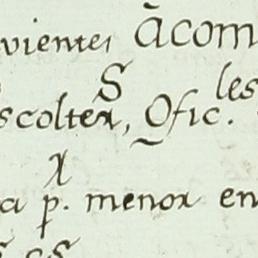 vientes Acom
S les
scolter, Ofic.
a p. menor en